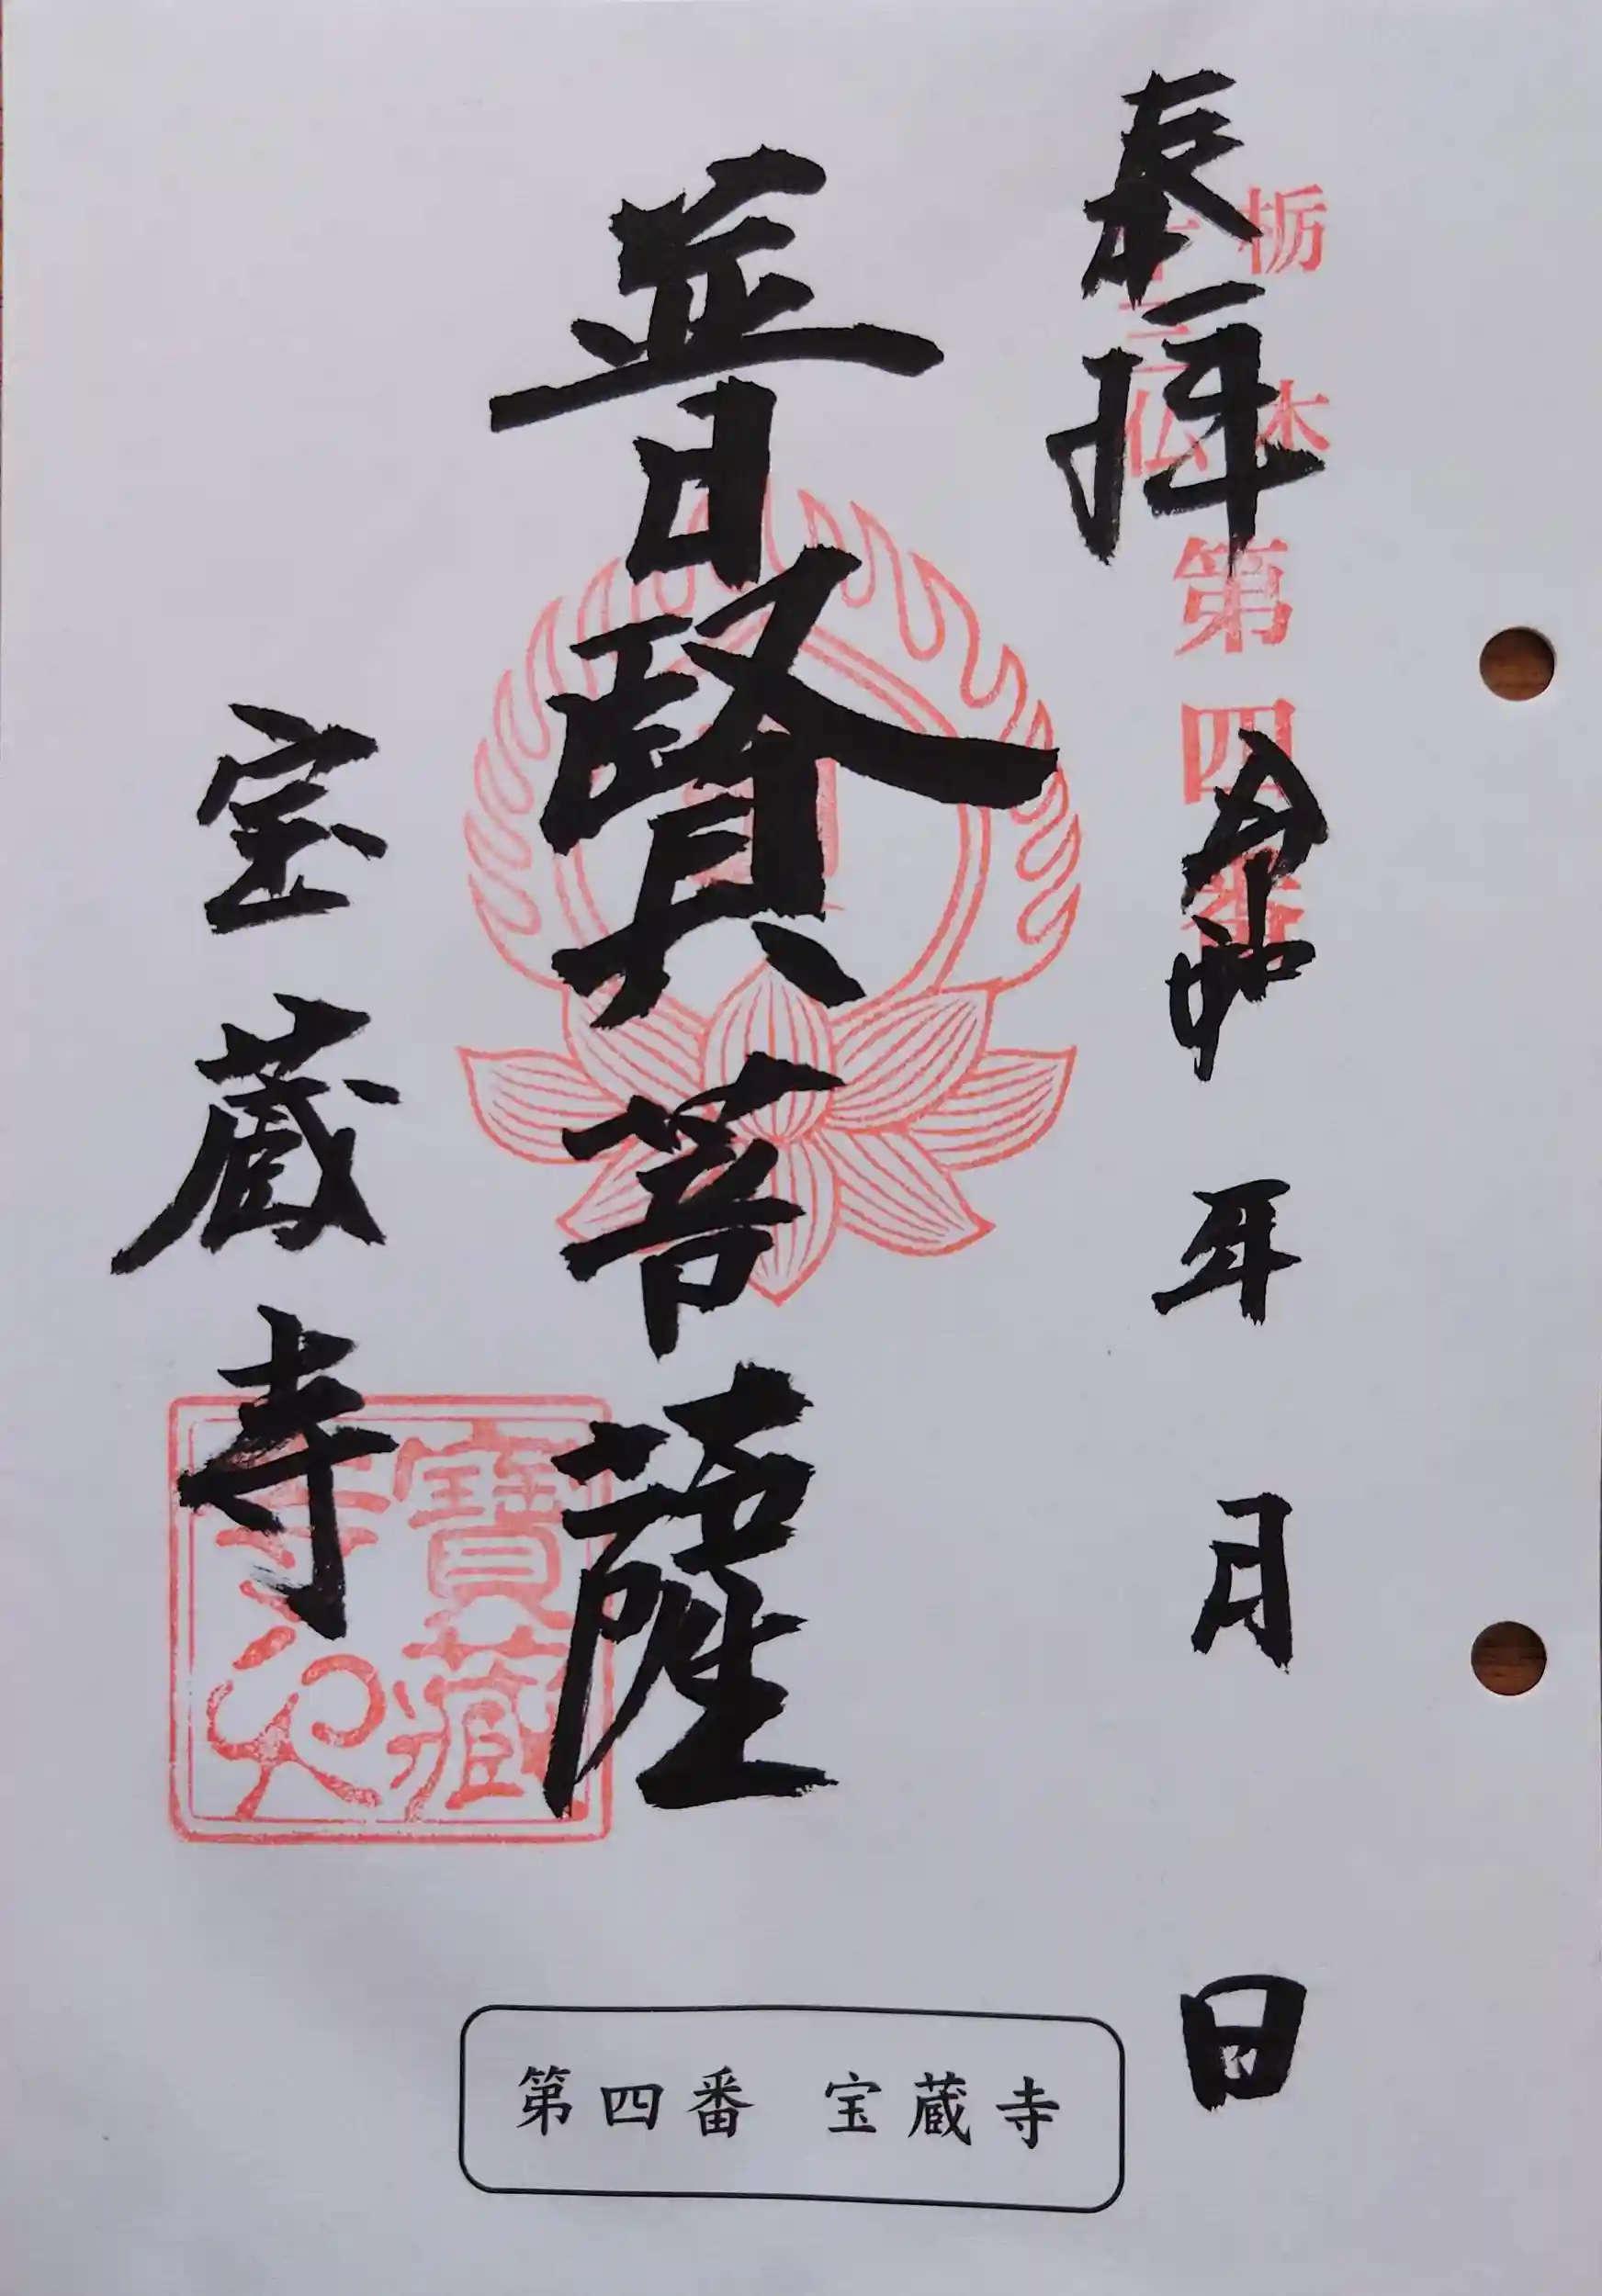 奉拝
栃木
十三仏
第四番
令和 年 月 日
普賢菩薩
宝蔵寺
寶藏
寺印
第四番 宝蔵寺